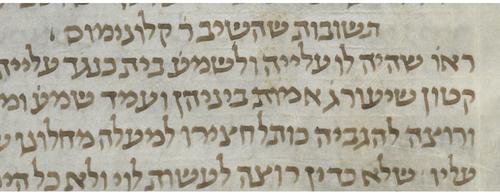 תשובות שהשיב ר קלונימוס
ראו שהיה לו עלייה ולשמע בית כנגד עלייה
קטון שיעור ג אמות ביניהן ועמד שמע ומ
ורוצה להגביה כותל חצירו למעלה מחלונו ש
עליו שלא כדין רוצה לעשות לוי ולא כל הימ